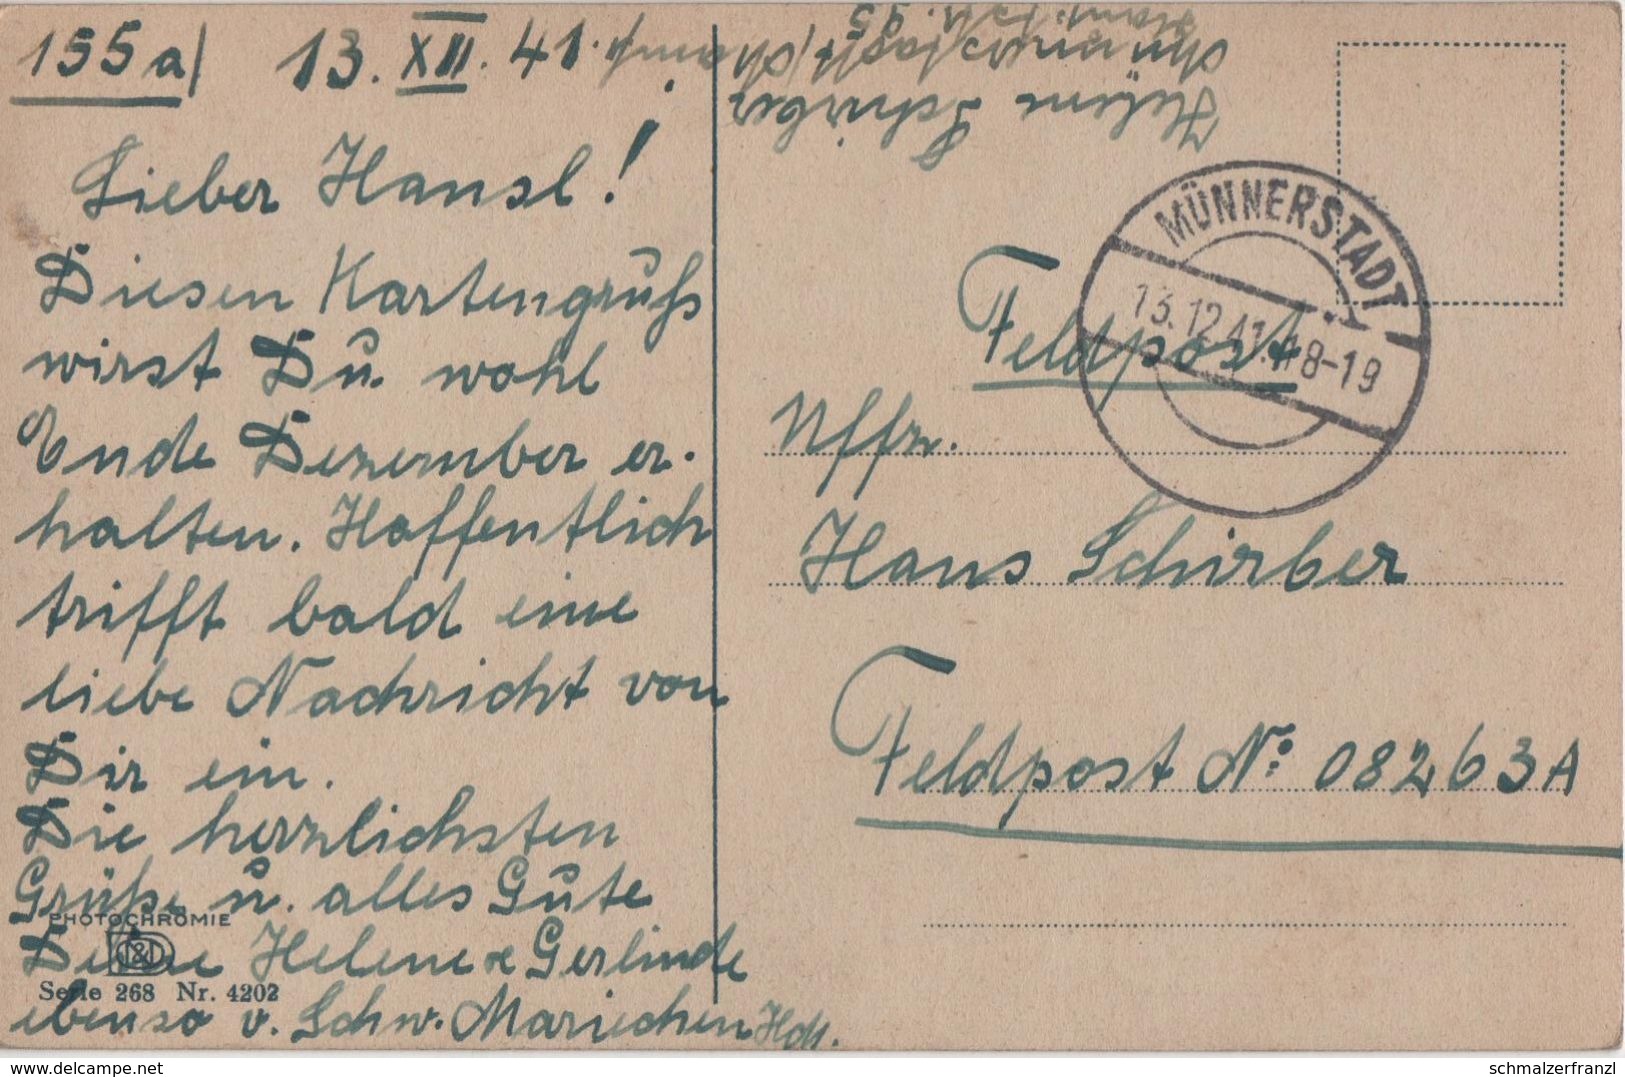 155a/ 13. XII. 41.
Lieber Hansl!
Diesen Kartengruß
wirst Du wohl
Ende Dezember er-
halten. Hoffentlich
trifft bald eine
liebe Nachricht von
Dir ein.
Die herzlichsten
Grüße u. alles Gute
Deine Helene & Gerlinde
ebenso v. Schw. Mariechen
PHOTOCHROMIE
Serie 268 Nr. 4202
Helene Schirber
MÜNNERSTADT
13.12.41.18-19
Feldpost
Uffz.
Hans Schirber
Feldpost No: 08263A
www.delcampe.net
schmalzerfranzl